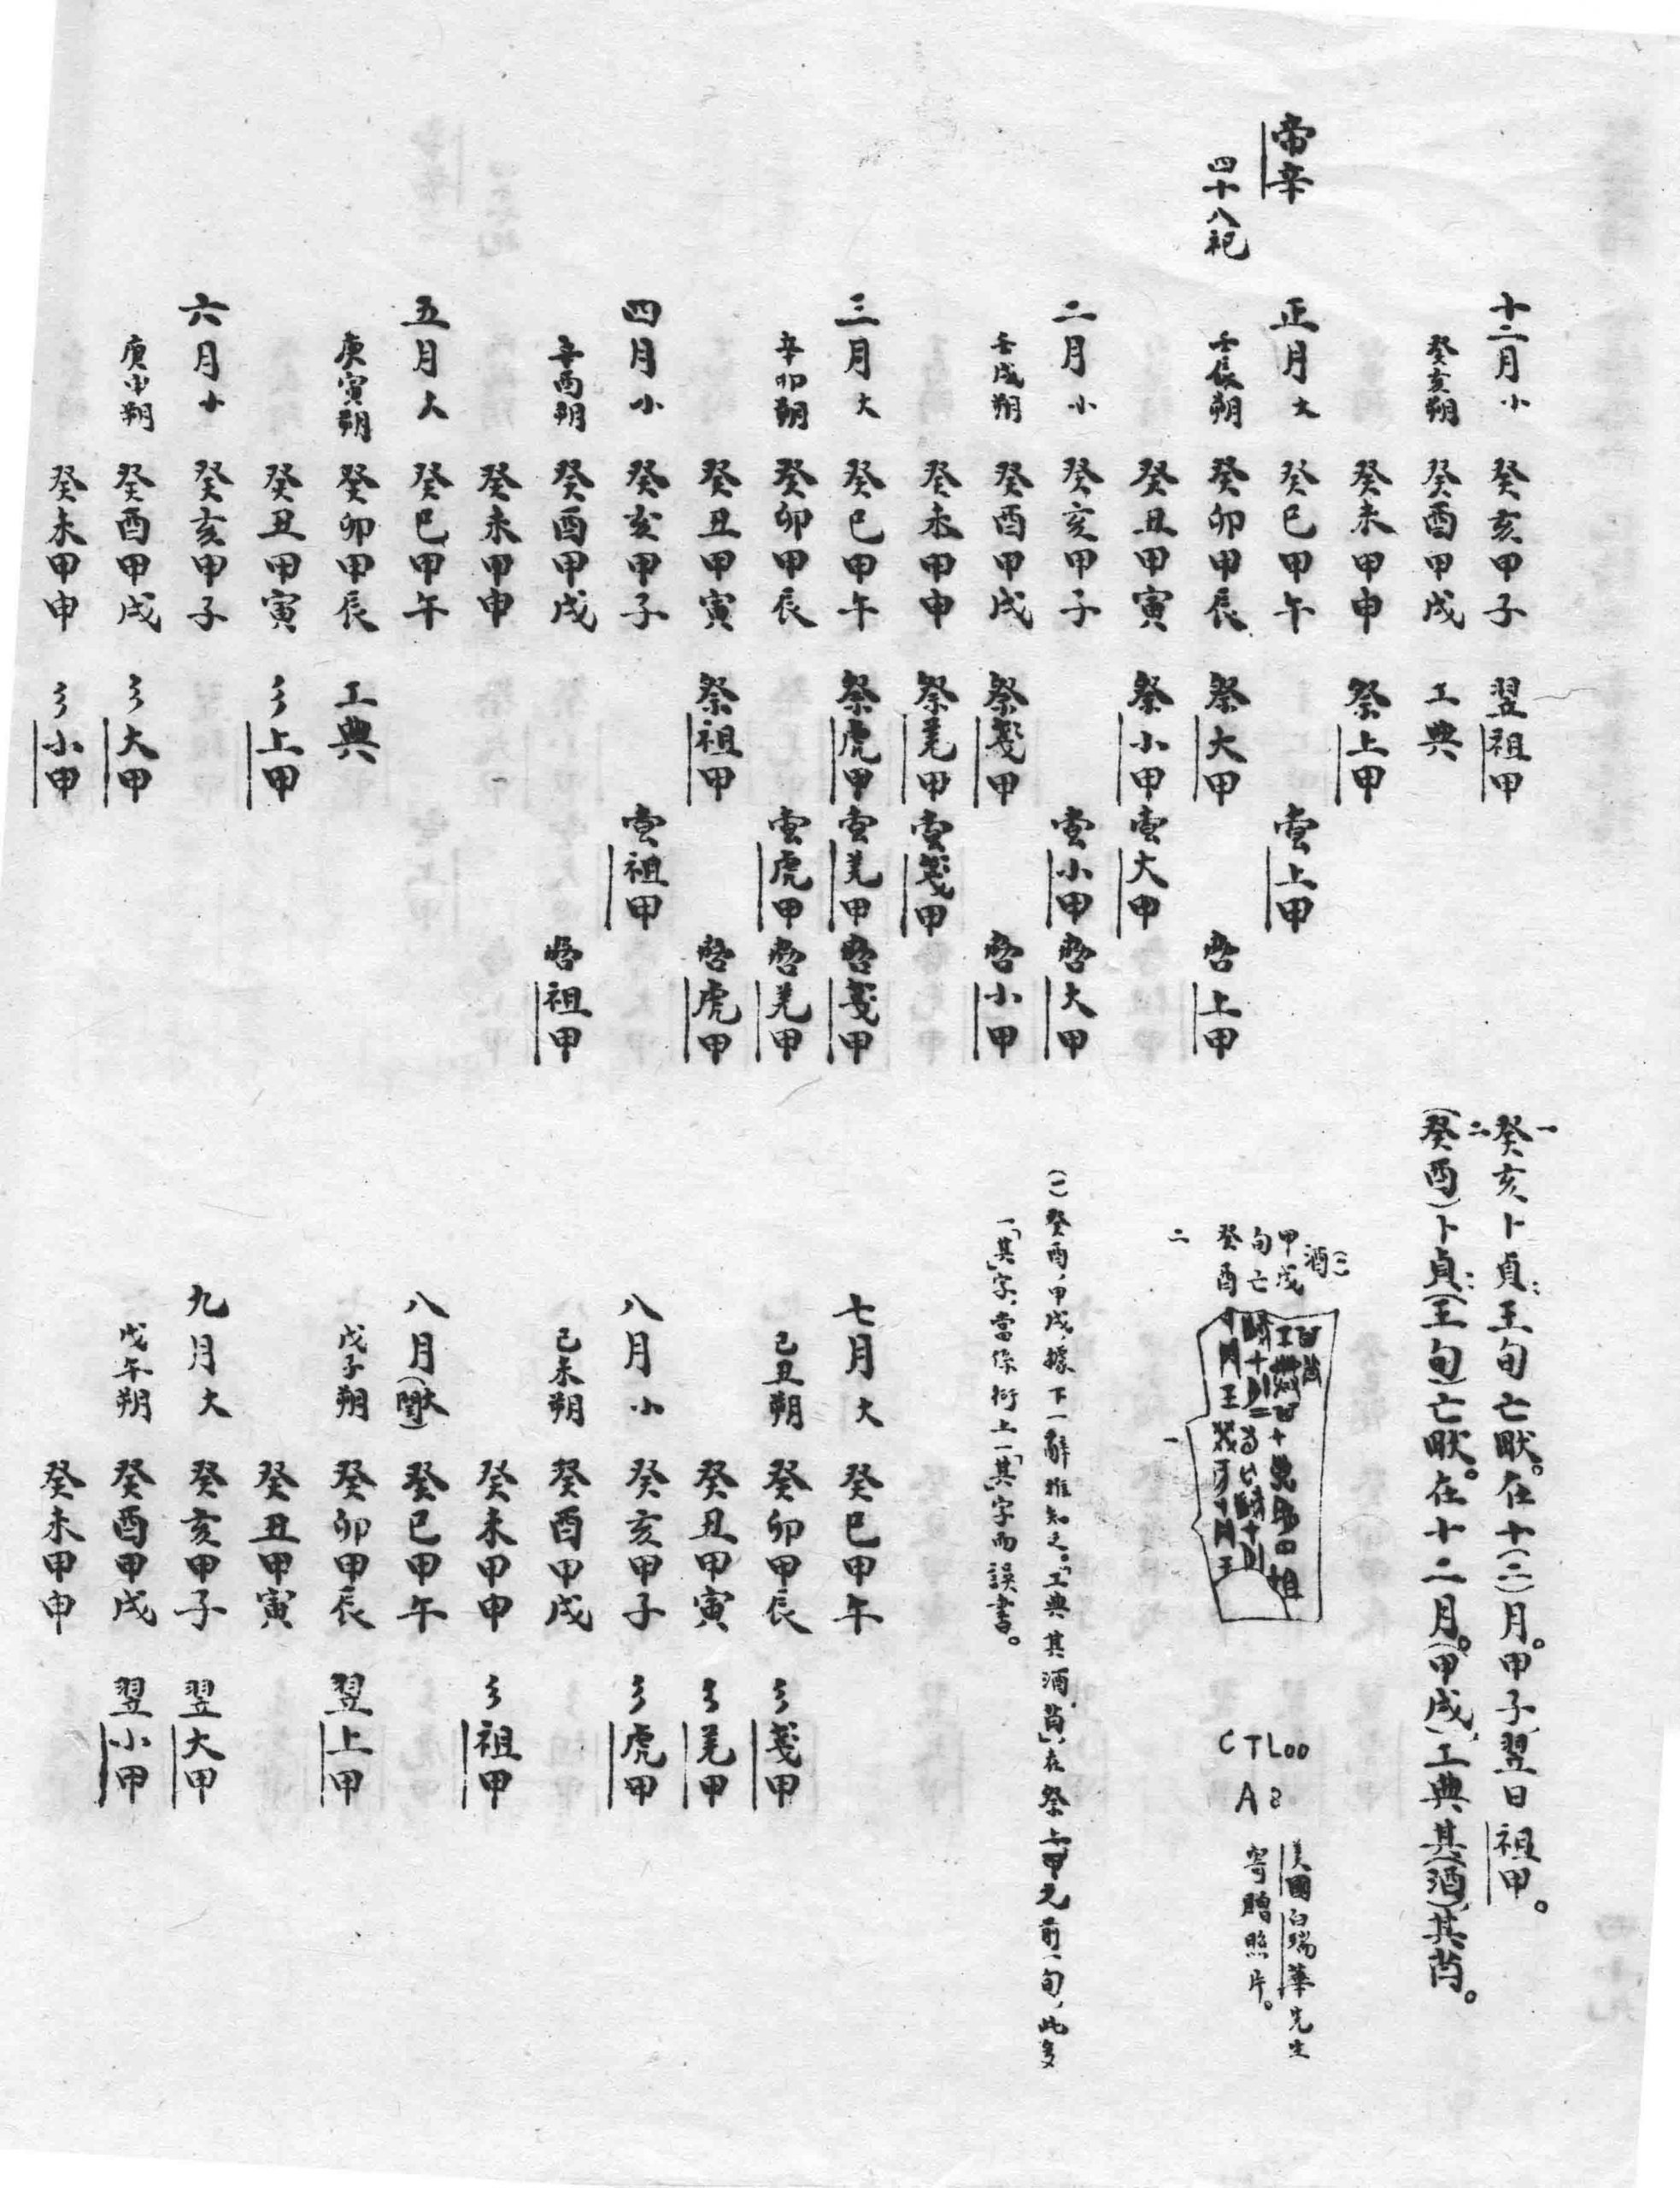 十二月小 癸亥甲子 翌祖甲
癸亥朔 癸酉甲戌 工典
癸未甲申 祭上甲
帝辛
正月大 癸巳甲午 壴上甲
四十八祀
壬辰朔 癸卯甲辰 祭大甲 㕣上甲
癸丑甲寅 祭小甲 壴大甲
二月小 癸亥甲子 壴小甲 㕣大甲
壬戌朔 癸酉甲戌 祭戔甲 㕣小甲
癸未甲申 祭羌甲 壴戔甲
三月大 癸巳甲午 祭虎甲 壴羌甲 㕣戔甲
辛卯朔 癸卯甲辰 壴虎甲 㕣羌甲
癸丑甲寅 祭祖甲 㕣虎甲
四月小 癸亥甲子 壴祖甲
辛酉朔 癸酉甲戌 㕣祖甲
癸未甲申
五月大 癸巳甲午
庚寅朔 癸卯甲辰 工典
癸丑甲寅 彡上甲
六月小 癸亥甲子
庚申朔 癸酉甲戌 彡大甲
癸未甲申 彡小甲
一
癸亥卜貞:王旬亡㽙。在十(二)月。甲子翌日祖甲。
二
(癸酉)卜貞:(王旬)亡㽙。在十二月。(甲戌)工典其(酒)其䒤。
酒(一)
甲戌
旬亡
癸酉
二
一
CTL00
A8
美國白瑞華先生
寄贈照片。
(一)癸酉、甲戌,據下一辭推知之。「工典其酒、䒤」,在祭上甲之前一旬,此多
一「其」字,當係衍上一「其」字而誤書。
七月大 癸巳甲午
己丑朔 癸卯甲辰 彡戔甲
癸丑甲寅 彡羌甲
八月小 癸亥甲子 彡虎甲
己未朔 癸酉甲戌
癸未甲申 彡祖甲
八月大(閏) 癸巳甲午
戊子朔 癸卯甲辰 翌上甲
癸丑甲寅
九月大 癸亥甲子 翌大甲
戊午朔 癸酉甲戌 翌小甲
癸未甲申